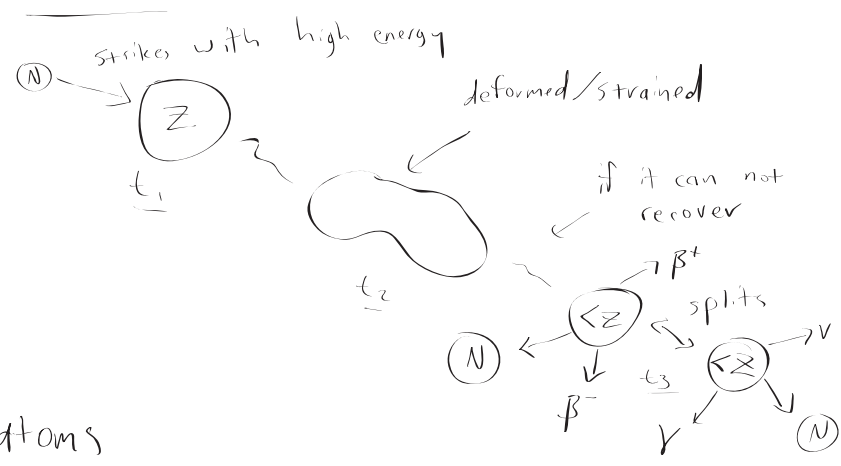 strikes with high energy
N
Z
deformed/strained
t₁
if it can not
recover
t₂
β⁺
splits
<Z
N
<Z
ν
t₃
β⁻
γ
N
atoms